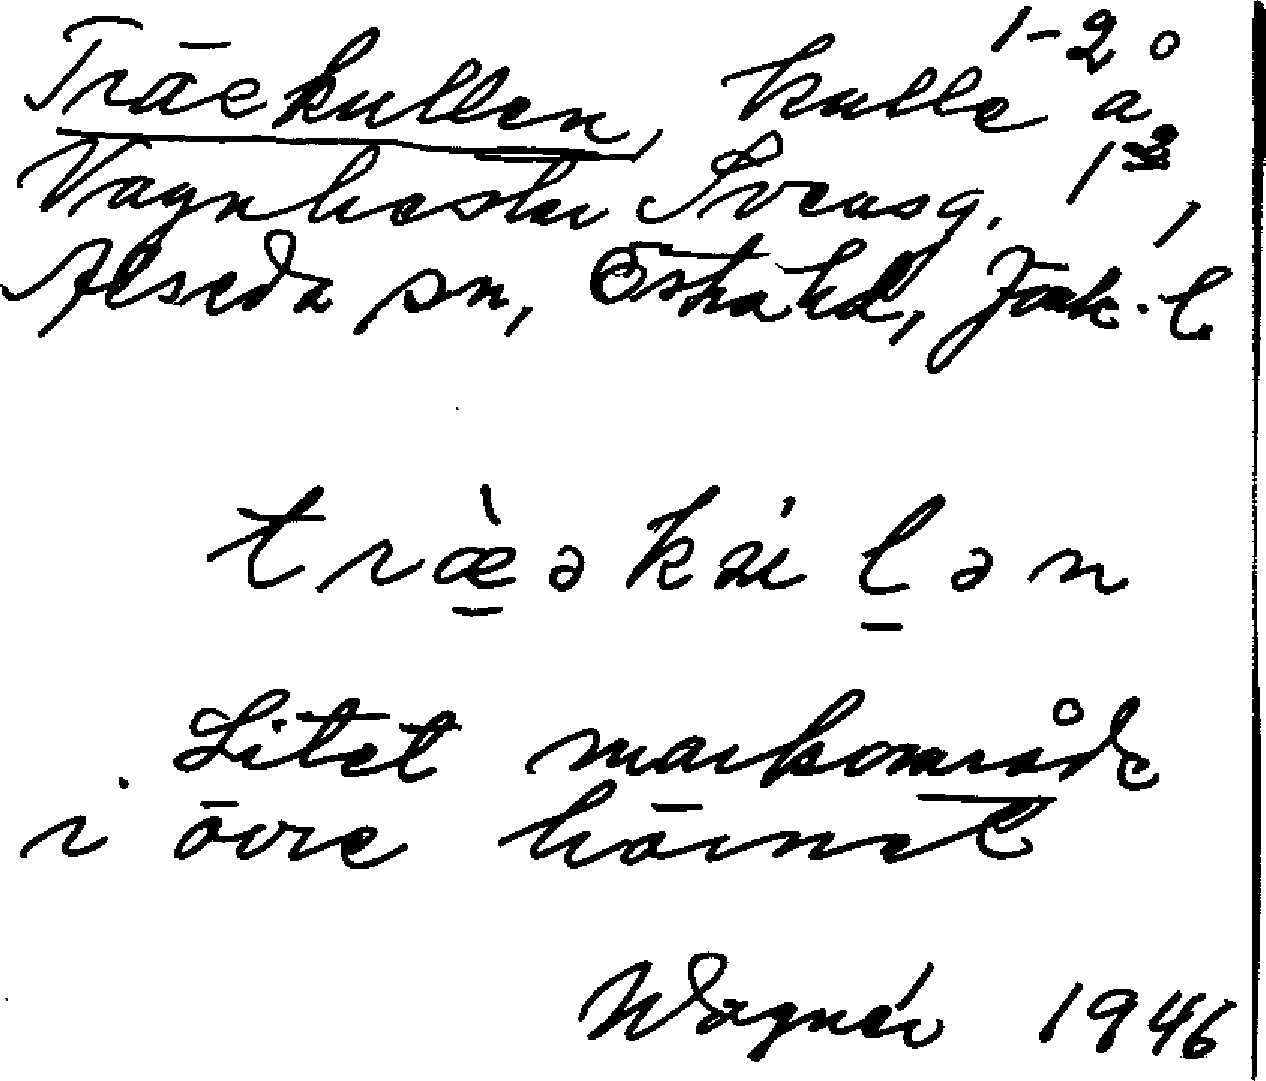 1-2
Träekullen, kulle å
Vagnhester Svensg. 1 2,
Alseda sn, Östra hd, Jönk. l.
træ̀əkúlən
Litet markområde
i övre hörnet
Wagnér 1946